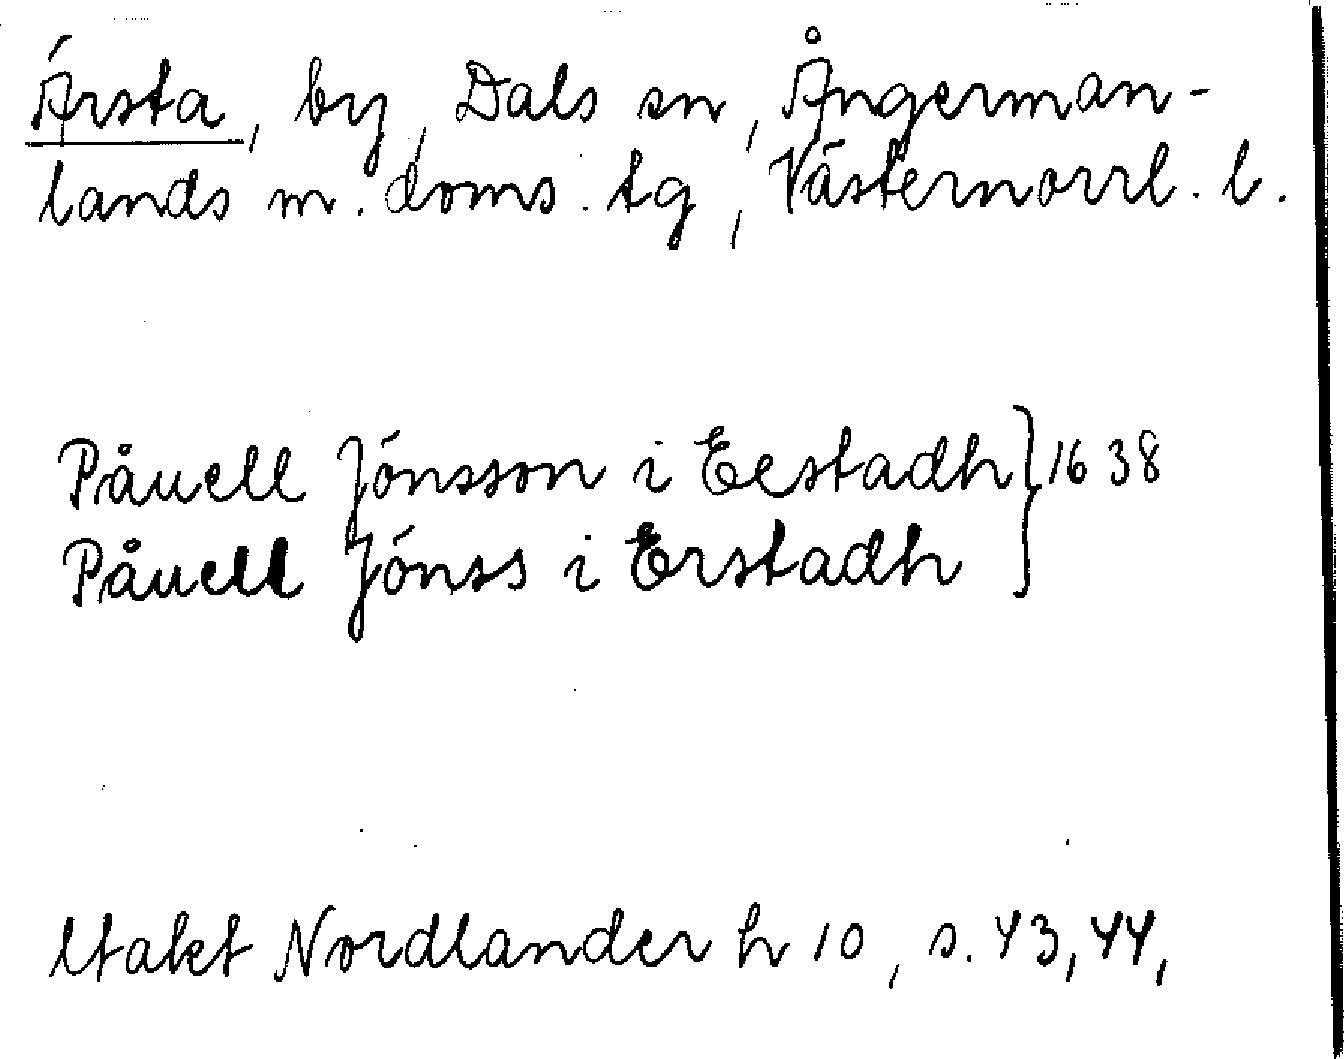 Ärsta, by, Dals sn, Ångerman-
lands m. doms. tg, Västernorrl. l.
Påuell Jónsson i Eestadh } 1638
Påuell Jónss i Erstadh
Utakt Nordlander h 10, s. 43, 44,